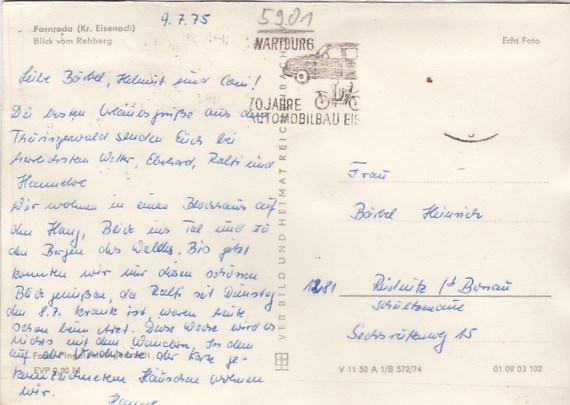 9.7.75
5901
Farnroda (Kr. Eisenach)
Blick vom Rehberg
Echt Foto
WARTBURG
70 JAHRE
AUTOMOBILBAU EIS
Liebe Bärbel, Helmut und
Die besten Urlaubsgrüße aus dem
Thüringerwald senden Euch bei
Wetter, Eberhard, Ralfi und
Hannelore
Wir wohnen in einem Blockhaus auf
dem Hang, Blick ins Tal und zu
den Bergen des Waldes. Bis jetzt
konnten wir nur diesen schönen
Blick genießen, da Ralfi seit Dienstag
den 8.7. krank ist, waren heute
schon beim Arzt. Diese Woche wird es
nichts mit dem Wandern. In dem
auf der Vorderseite der Karte ge-
kennzeichnetem Häuschen wohnen
wir.
Hanne
EVP 0,20 M
VEB BILD UND HEIMAT REICHENBACH
Frau
Bärbel Heinrich
1281
Schultzenaue
15
V 11 50 A 1/B 572/74
01 09 03 102